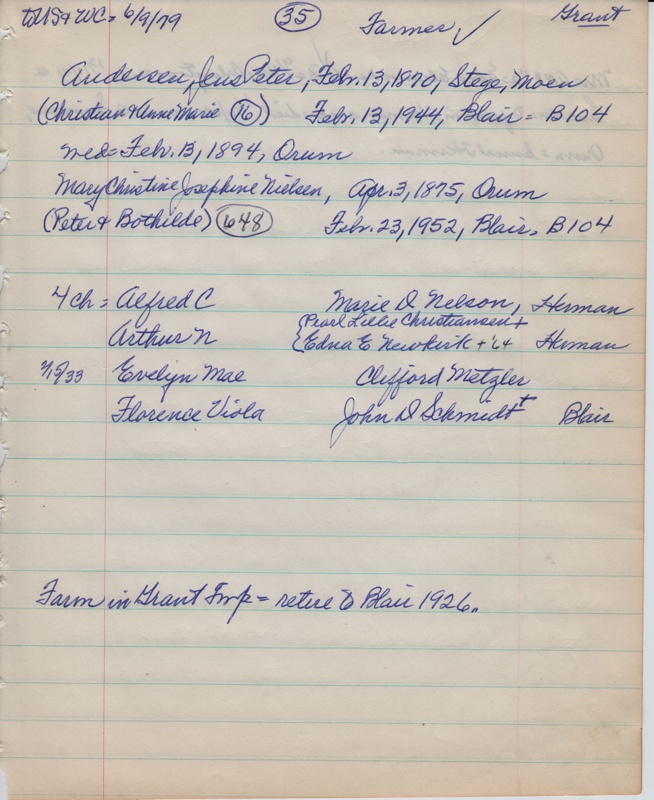 to US & WC = 6/9/79 35 Farmer ✓ Grant
Andersen, Jens Peter, Febr. 13, 1870, Stege, Moen
(Christian & Anne Marie 16) Febr. 13, 1944, Blair = B104
med = Febr. 13, 1894, Orum
Mary Christine Josephine Nielsen, Apr. 3, 1875, Orum
(Peter & Bothilde) 648 Febr. 23, 1952, Blair = B104
4 ch = Alfred C Marie D Nelson, Herman
{Pearl Lillie Christiansen +
Arthur N {Edna E Newkirk + '64 Herman
Evelyn Mae Clifford Metzler
Florence Viola John D Schmidt + Blair
Farm in Grant Twp = retire to Blair 1926..